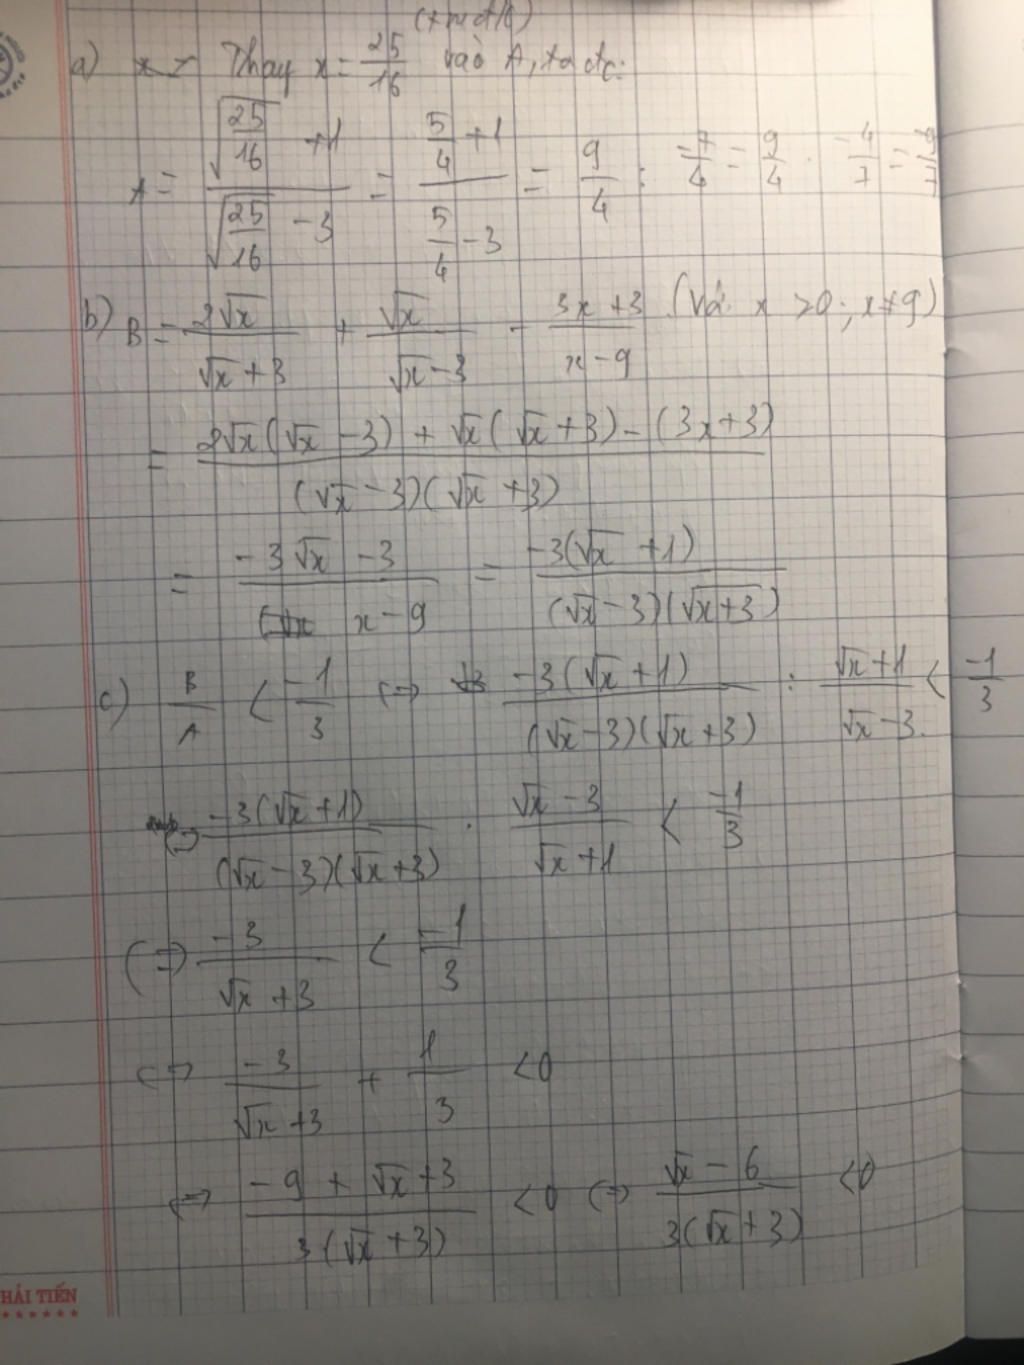 (tmđk)
a) Thay x = 25/16 vào A, ta đc:
A = (√(25/16) + 1)/(√(25/16) - 3) = (5/4 + 1)/(5/4 - 3) = 9/4 : -7/4 = 9/4 . -4/7 =
b) B = 2√x/(√x + 3) + √x/(√x - 3) - (3x + 3)/(x - 9) (Với x > 0; x ≠ 9)
= (2√x(√x - 3) + √x(√x + 3) - (3x + 3))/((√x - 3)(√x + 3))
= (-3√x - 3)/(x - 9) = -3(√x + 1)/((√x - 3)(√x + 3))
c) B/A < -1/3 ⇔ -3(√x + 1)/((√x - 3)(√x + 3)) : (√x + 1)/(√x - 3) < -1/3
⇔ -3(√x + 1)/((√x - 3)(√x + 3)) . (√x - 3)/(√x + 1) < -1/3
⇔ -3/(√x + 3) < -1/3
⇔ -3/(√x + 3) + 1/3 < 0
⇔ (-9 + √x + 3)/(3(√x + 3)) < 0 ⇔ (√x - 6)/(3(√x + 3)) < 0
HẢI TIẾN